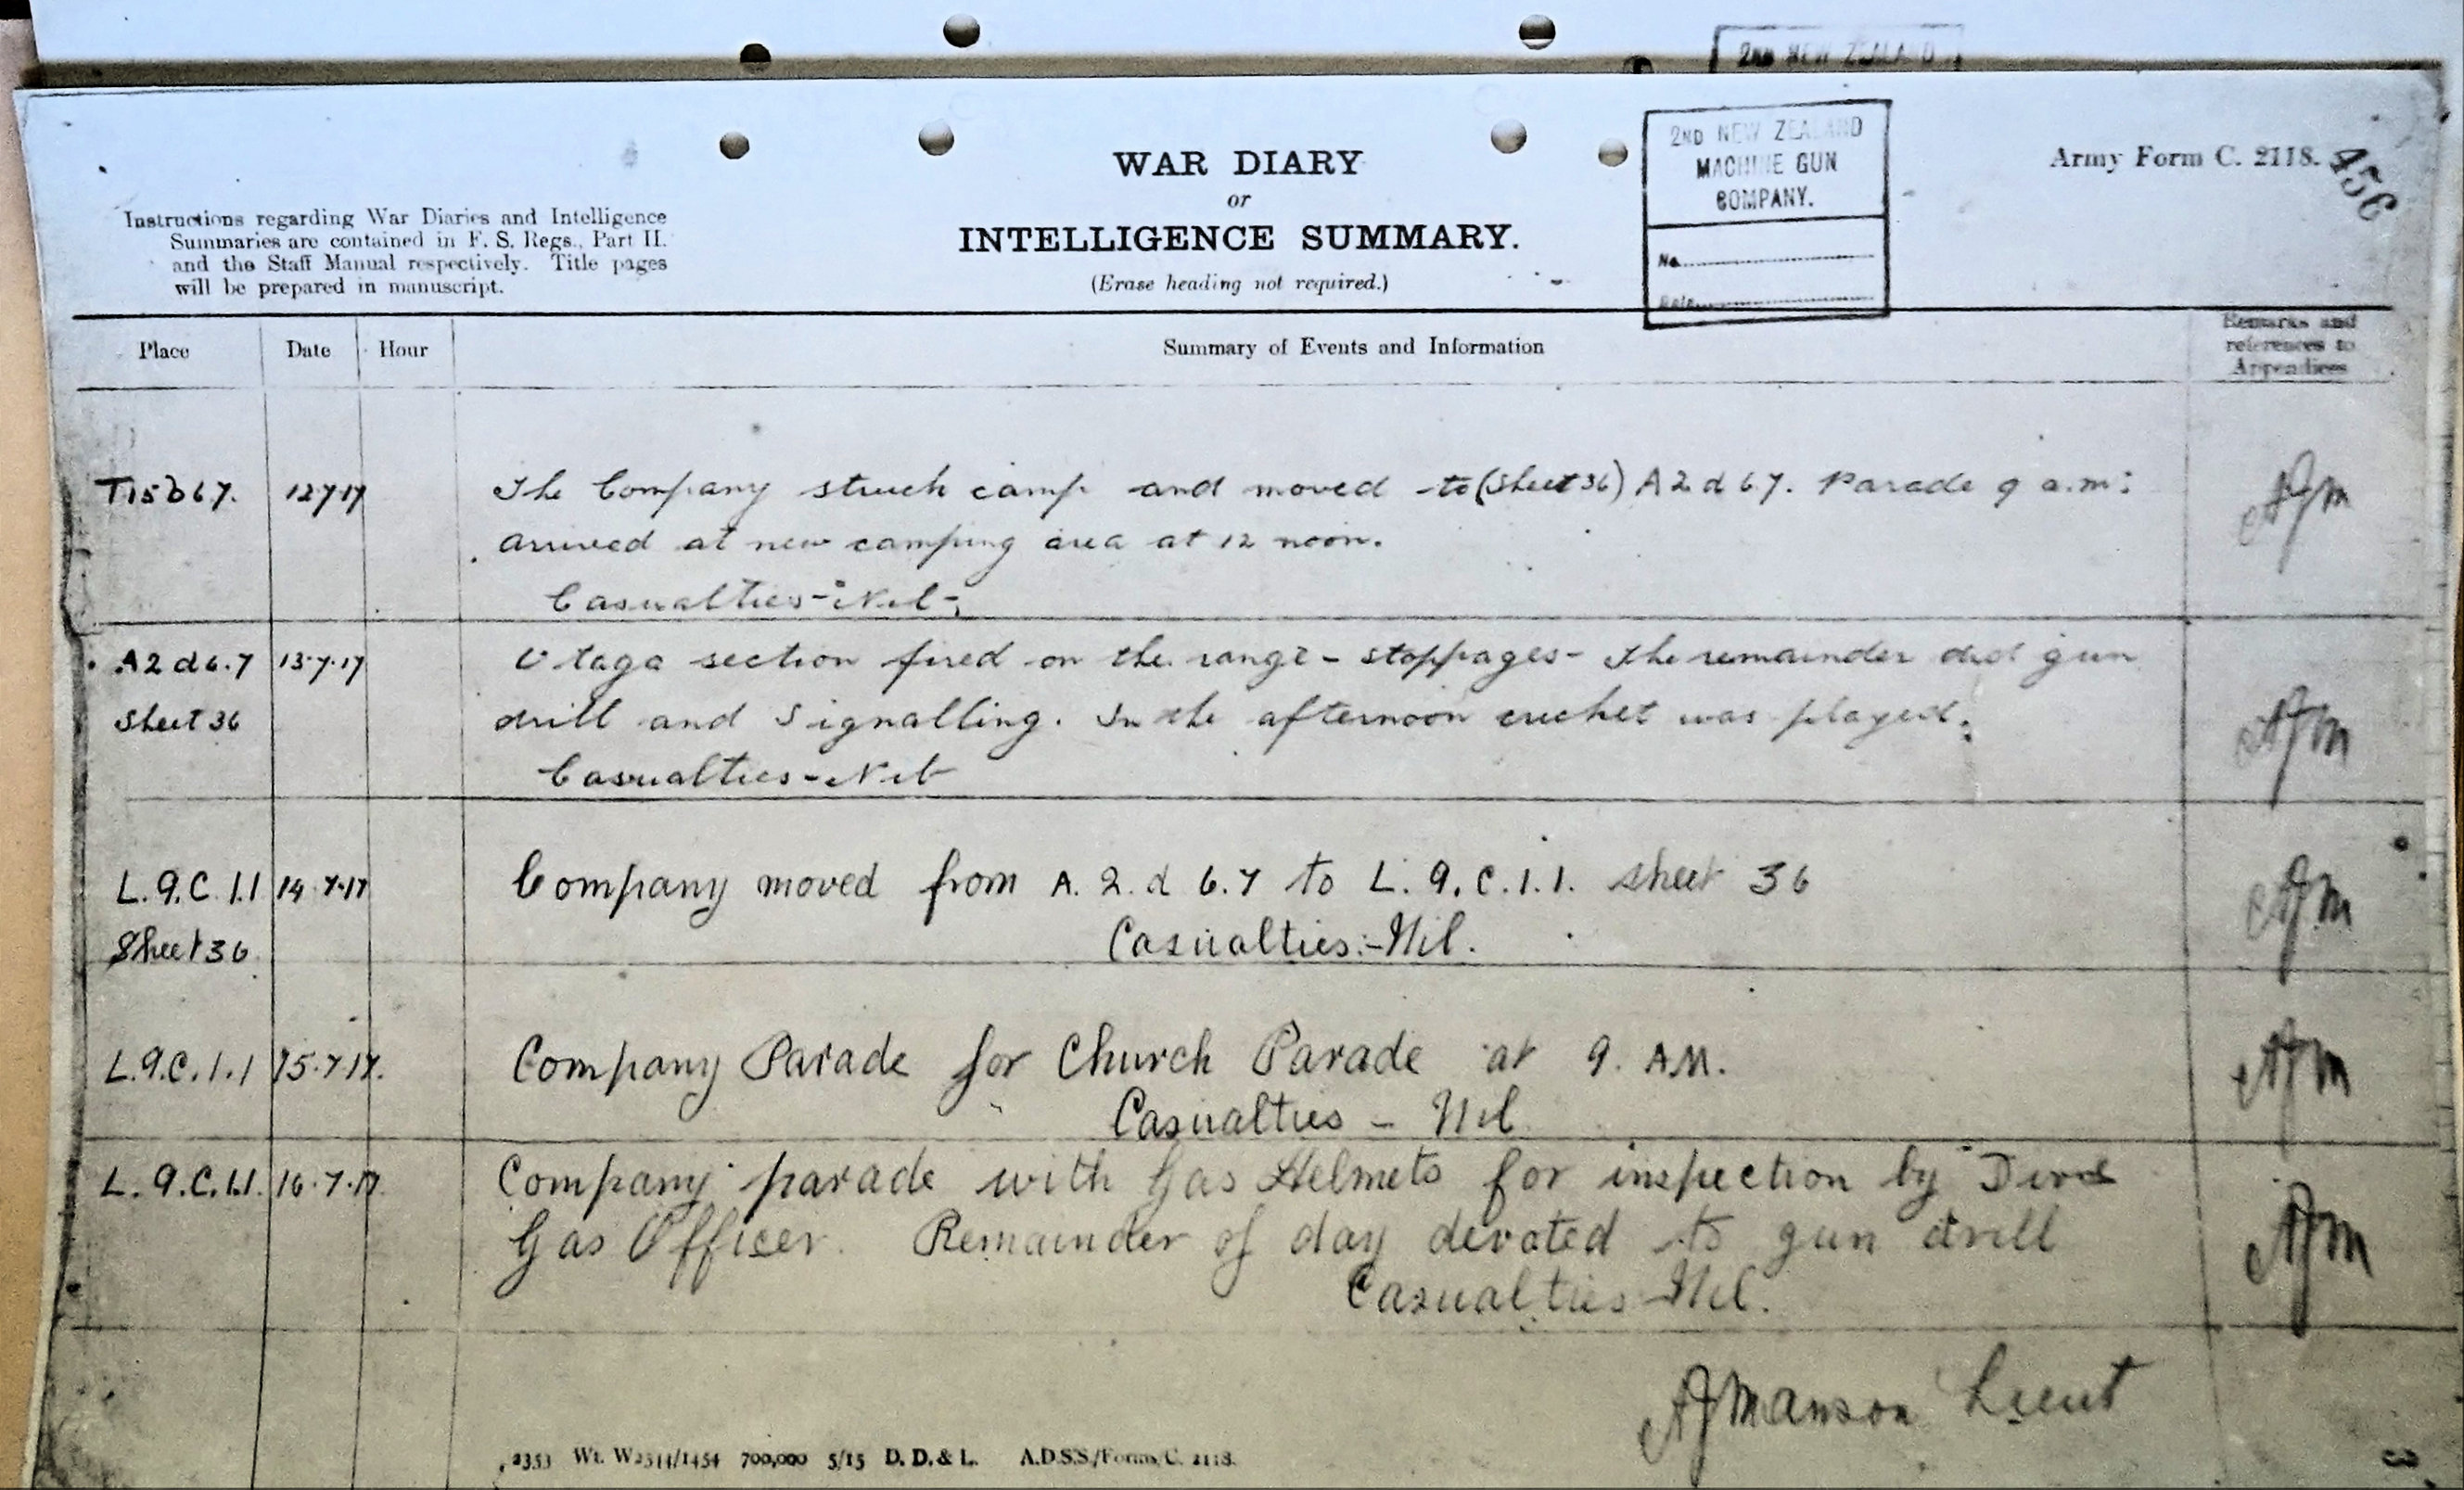 2ND NEW ZEALAND
2ND NEW ZEALAND
MACHINE GUN
COMPANY.
No.
Date
Army Form C. 2118.
456
WAR DIARY
or
INTELLIGENCE SUMMARY.
(Erase heading not required.)
Instructions regarding War Diaries and Intelligence
Summaries are contained in F. S. Regs., Part II.
and the Staff Manual respectively. Title pages
will be prepared in manuscript.
Place Date Hour Summary of Events and Information Remarks and
references to
Appendices
T15b67. 12.7.17 The Company struck camp and moved to (Sheet 36) A2d67. Parade 9 a.m:
arrived at new camping area at 12 noon. AJM
Casualties - Nil -
A2d6.7 13.7.17 Otago section fired on the range - stoppages - The remainder did gun
Sheet 36 drill and Signalling. In the afternoon cricket was played. AJM
Casualties - Nil
L.9.C.1.1 14.7.17 Company moved from A.2.d 6.7 to L.9.C.1.1. sheet 36 AJM
Sheet 36 Casualties:- Nil.
L.9.C.1.1 15.7.17. Company Parade for Church Parade at 9. AM. AJM
Casualties - Nil
L.9.C.1.1. 16.7.17 Company parade with Gas Helmets for inspection by
Gas Officer. Remainder of day devoted to gun drill AJM
Casualties Nil.
AJManson Lieut
2353 Wt. W2544/1454 700,000 5/15 D. D. & L. A.D.S.S./Forms/C. 2118.